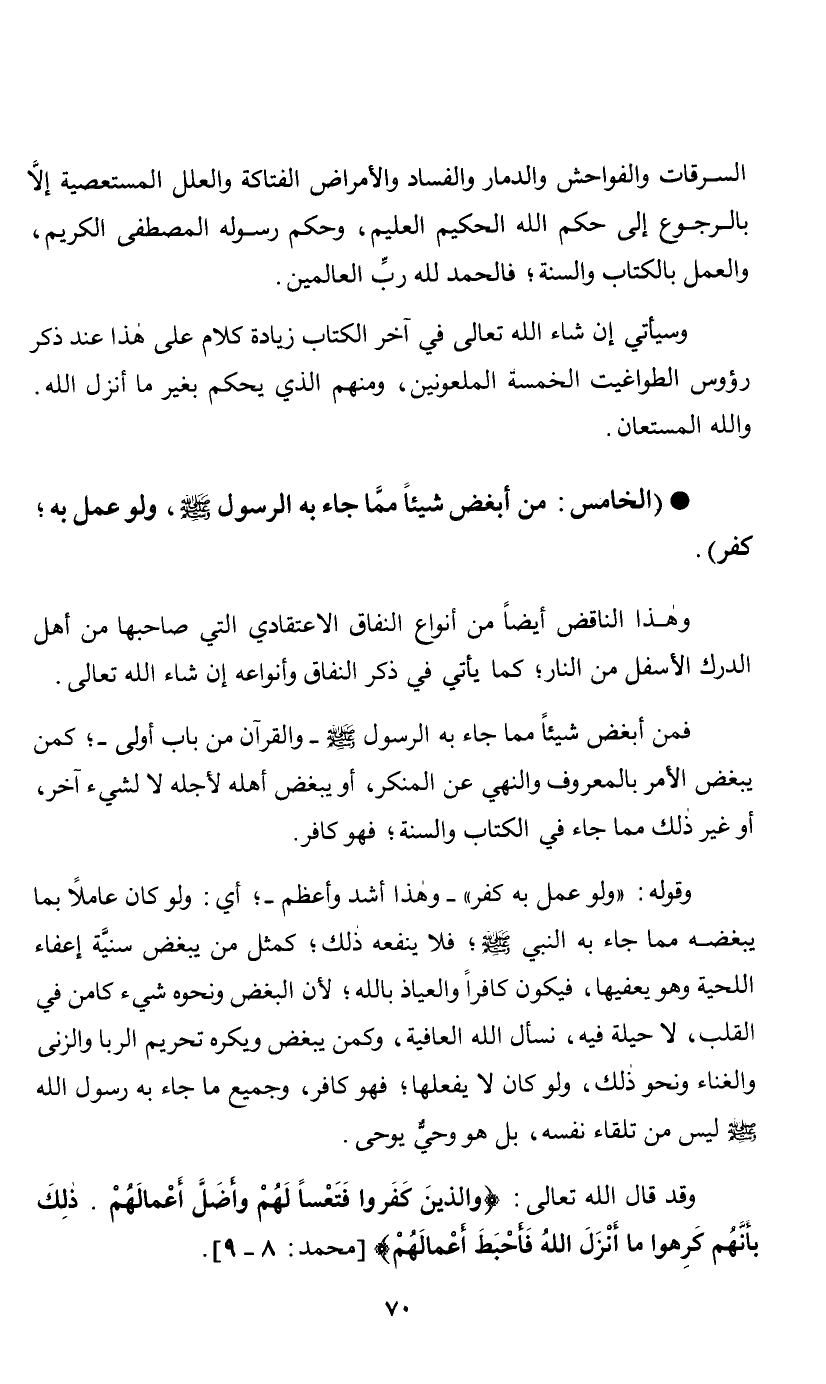 السرقات والفواحش والدمار والفساد والأمراض الفتاكة والعلل المستعصية إلاَّ
بالرجوع إلى حكم الله الحكيم العليم، وحكم رسوله المصطفى الكريم،
والعمل بالكتاب والسنة؛ فالحمد لله ربِّ العالمين.
وسيأتي إن شاء الله تعالى في آخر الكتاب زيادة كلام على هٰذا عند ذكر
رؤوس الطواغيت الخمسة الملعونين، ومنهم الذي يحكم بغير ما أنزل الله.
والله المستعان.
● (الخامس: من أبغض شيئاً ممَّا جاء به الرسول ﷺ، ولو عمل به؛
كفر).
وهٰذا الناقض أيضاً من أنواع النفاق الاعتقادي التي صاحبها من أهل
الدرك الأسفل من النار؛ كما يأتي في ذكر النفاق وأنواعه إن شاء الله تعالى.
فمن أبغض شيئاً مما جاء به الرسول ﷺ ـ والقرآن من باب أولى ـ؛ كمن
يبغض الأمر بالمعروف والنهي عن المنكر، أو يبغض أهله لأجله لا لشيء آخر،
أو غير ذٰلك مما جاء في الكتاب والسنة؛ فهو كافر.
وقوله: «ولو عمل به كفر» ـ وهٰذا أشد وأعظم ـ؛ أي: ولو كان عاملاً بما
يبغضه مما جاء به النبي ﷺ؛ فلا ينفعه ذٰلك؛ كمثل من يبغض سنيَّة إعفاء
اللحية وهو يعفيها، فيكون كافراً والعياذ بالله؛ لأن البغض ونحوه شيء كامن في
القلب، لا حيلة فيه، نسأل الله العافية، وكمن يبغض ويكره تحريم الربا والزنى
والغناء ونحو ذٰلك، ولو كان لا يفعلها؛ فهو كافر، وجميع ما جاء به رسول الله
ﷺ ليس من تلقاء نفسه، بل هو وحيٌ يوحى.
وقد قال الله تعالى: ﴿والذينَ كَفَروا فَتَعْساً لَهُمْ وأَضَلَّ أَعْمالَهُمْ . ذٰلِكَ
بأَنَّهُم كَرِهوا ما أَنْزَلَ اللهُ فَأَحْبَطَ أَعْمالَهُمْ﴾ [محمد: ٨ ـ ٩].
٧٠